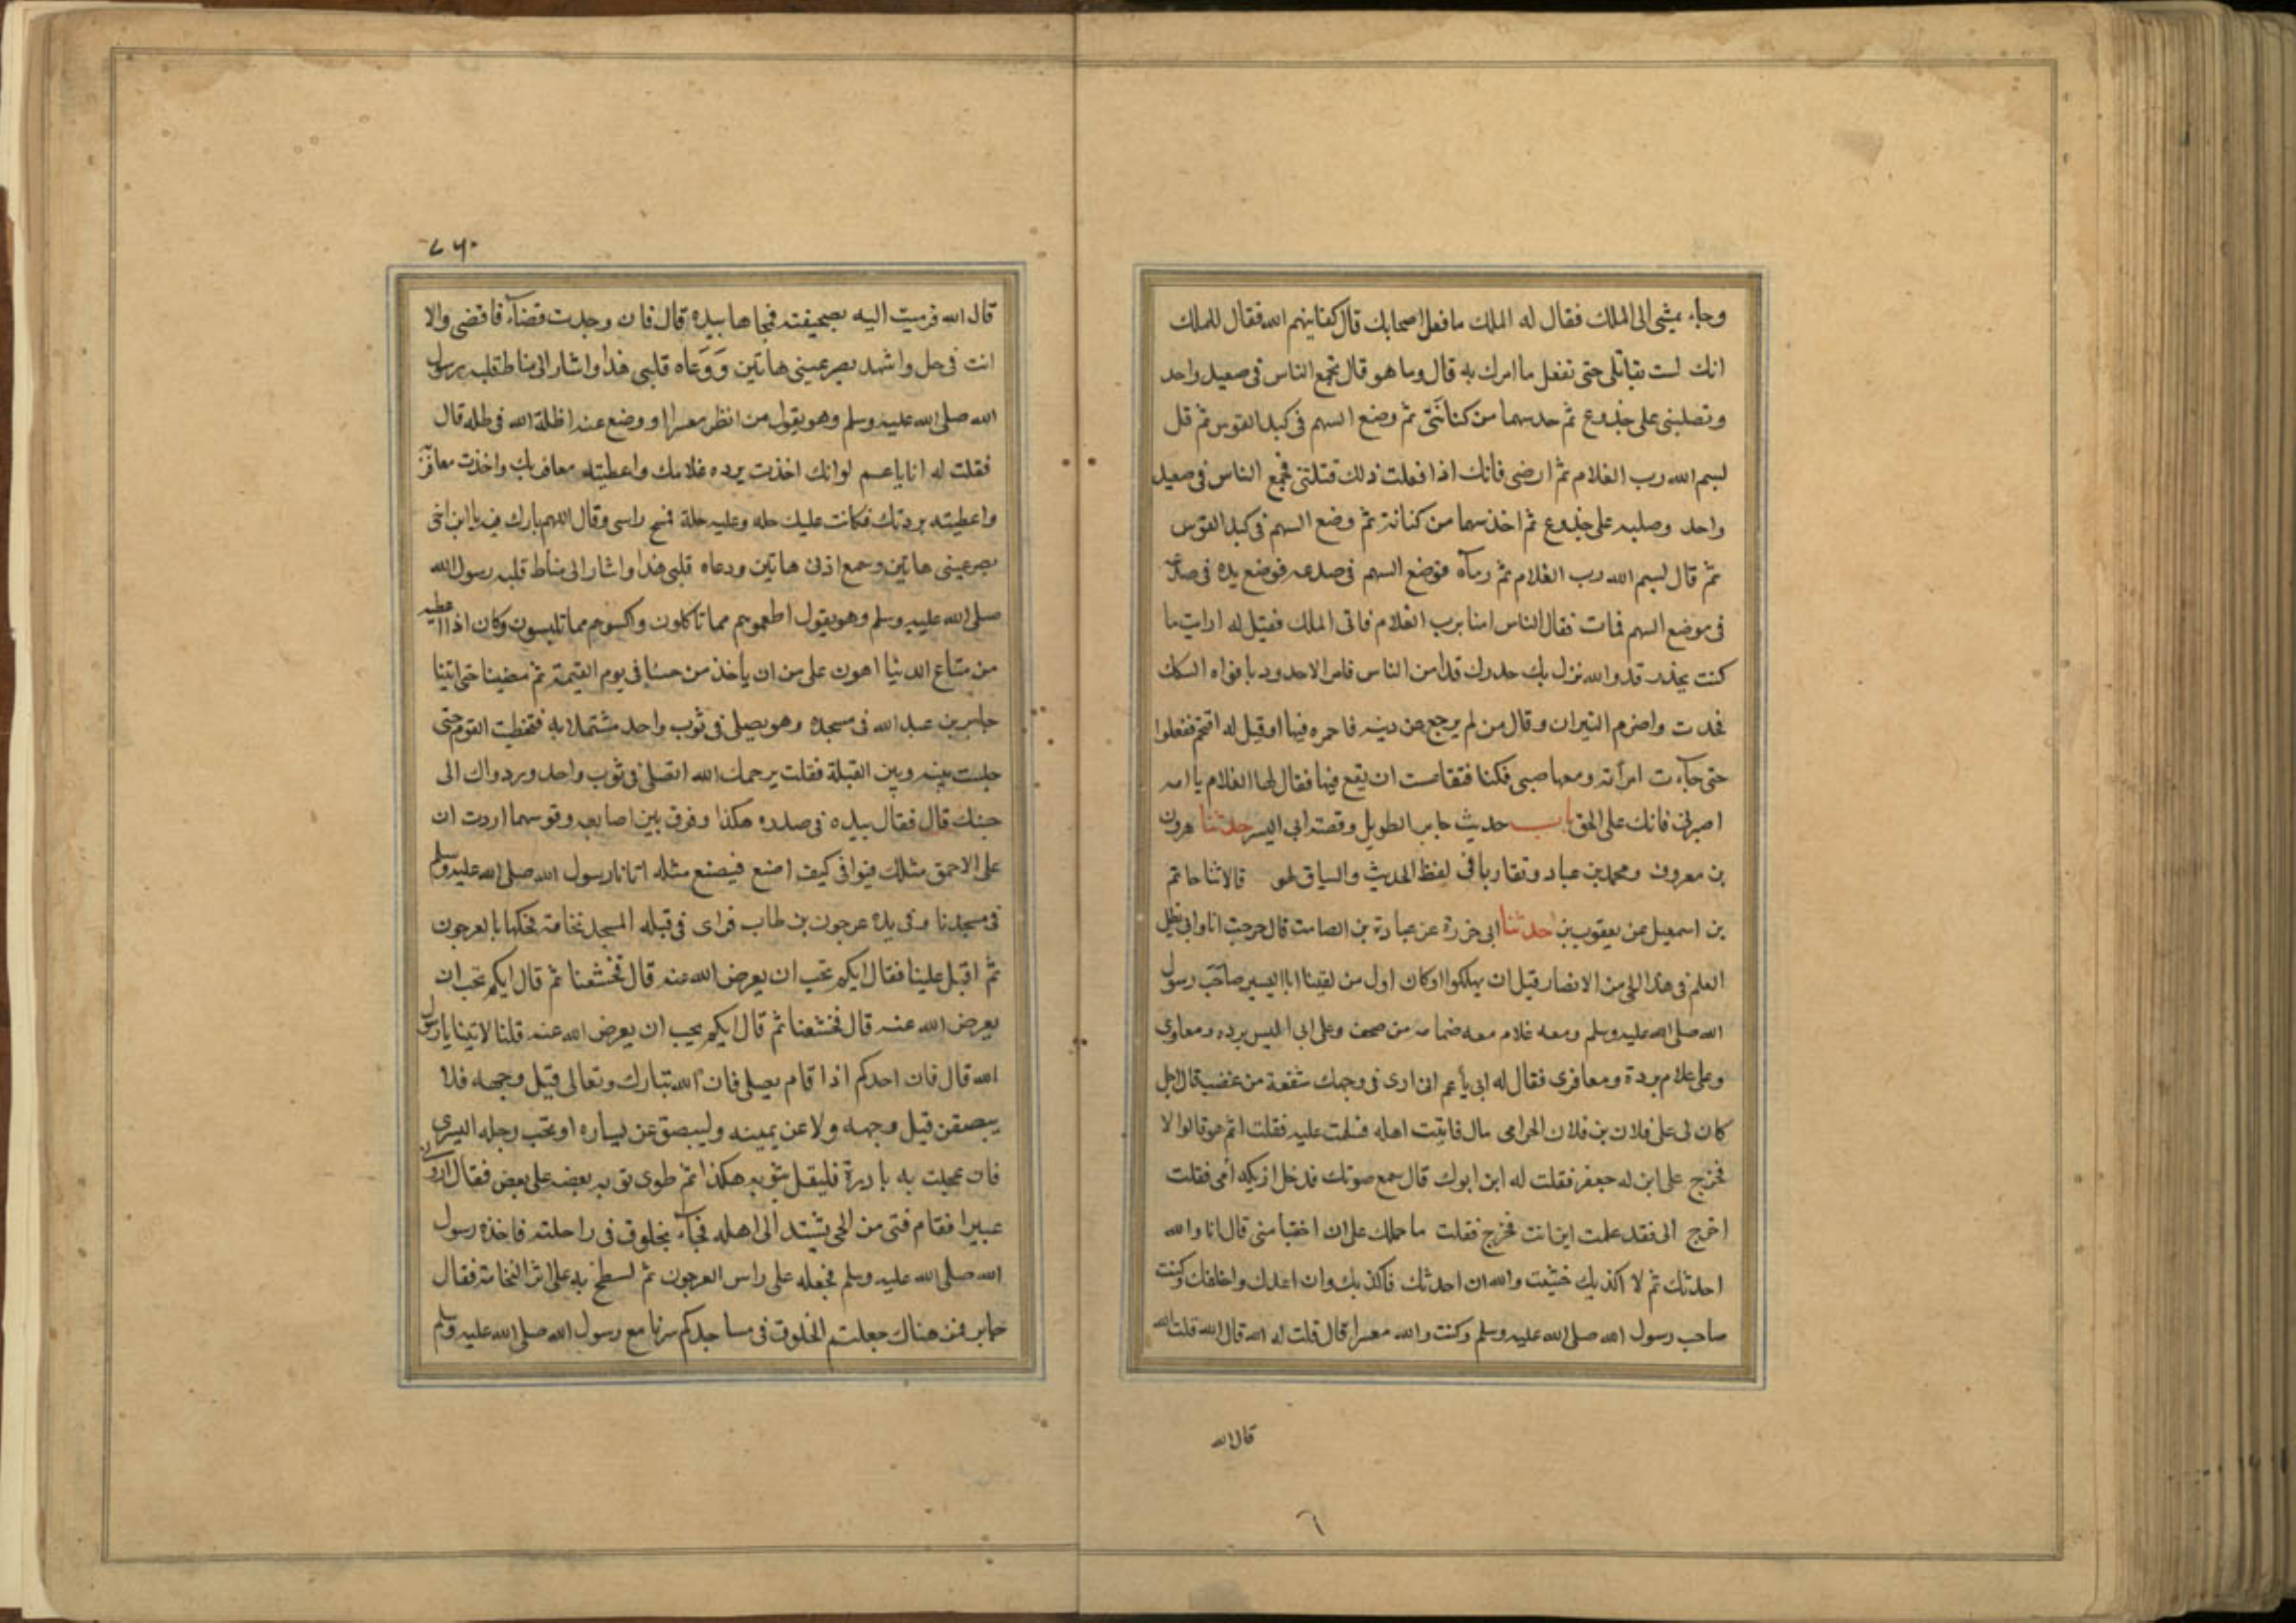 وجاء يمشي الى الملك فقال له الملك ما فعل اصحابك قال كفانيهم الله فقال للملك
انك لست بقاتلي حتى تفعل ما امرك به قال وما هو قال تجمع الناس في صعيد واحد
وتصلبني على جذوع ثم خد سهما من كنانتي ثم وضع السهم في كبد القوس ثم قل
لبسم الله رب الغلام ثم ارضى فانك اذا فعلت ذلك قتلتني فجمع الناس في صعيد
واحد وصلبه على جذوع ثم اخذ سهما من كنانته ثم وضع السهم في كبد القوس
ثم قال لبسم الله رب الغلام ثم رماه فوضع السهم في صدعه فوضع يده في صدغه
في موضع السهم فمات فقال الناس امنا برب الغلام فاتى الملك فقيل له ارايت ما
كنت تحذر قد والله نزل بك حدرك قد امن الناس فامر الاحدود بافواه السكك
فخدت واضرم النيران وقال من لم يرجع عن دينه فاحمره فيها او قيل له اقتحم ففعلوا
حتى جاءت امرأته ومعها صبي فكنا فتقاعست ان يقع فيها فقال لها الغلام يا امه
اصبري فانك على الحق باب حديث جابر الطويل وقصته ابي اليسر حدثنا هرون
بن معروف ومحمد بن عباد وتقاربا في لفظ الحديث والسياق لهو قالا ثنا حاتم
بن اسمعيل عن يعقوب بن حدثنا ابى حزرة عن عبادة بن الصامت قال خرجت انا وابى نطل
العلم في هذا الحي من الانصار قيل ان يهلكوا اوكان اول من لقينا ابا اليسير صاحب رسول
الله صلى الله عليه وسلم ومعه غلام معه ضمامه من صحف وعلى ابى اليس برده ومعاوى
وعلى غلام بردة ومعافرى فقال له ابى يا عم انى ارى في وجهك شفعة من غضب قال اجل
كان لى على فلان بن فلان الحرامى مال فاتيت اهله فسلمت عليه فقلت اثم هو قالوا لا
فخرج على ابن له جعفر فقلت له ابن ابوك قال سمع صوتك فدخل اريكه امى فقلت
اخرج الى فقد علمت اين انت فخرج فقلت ما حملك على ان اختبا منى قال انا والله
احدثك ثم لا اكذبك خشيت والله ان احدثك فاكذبك وان اعدك واخلفك وكنت
صاحب رسول الله صلى الله عليه وسلم وكنت والله معسرا قال قلت له الله قال الله قلت الله
قال الله
٧٤٠
قال الله فرميت اليه بصحيفته فمحاها بيده قال فان وجدت قضاء فاقضى والا
انت في حل واشهد بصر عينى هاتين ووعاه قلبى هذا واشار الى مناط قلبه رسول
الله صلى الله عليه وسلم وهو يقول من انظر معسرا او وضع عنه اظله الله في ظله قال
فقلت له انا يا عم لو انك اخذت برده غلامك واعطيته معافريك واخذت معافريه
واعطيته بردتك فكانت عليك حله وعليه حلة فمسح راسى وقال اللهم بارك فيه يا ابن اخى
بصر عينى هاتين وسمع اذنى هاتين ودعاه قلبى هذا واشار الى مناط قلبه رسول الله
صلى الله عليه وسلم وهو يقول اطعموهم مما تاكلون واكسوهم مما تلبسون وكان اذا اعطيه
من متاع الدنيا اهون على من ان ياخذ من حسنا فى يوم القيمة ثم مضينا حتى اتينا
جابر بن عبد الله في مسجده وهو يصلى في ثوب واحد مشتملا به فتخطيت القوم حتى
جلست بينه وبين القبلة فقلت يرحمك الله اتصلى في ثوب واحد وردواك الى
جنبك قال فقال بيده في صدره هكذا وفرق بين اصابعه وقوسهما اردت ان
على الاحمق مثلك فيرانى كيف اصنع فيصنع مثله اتانا رسول الله صلى الله عليه وسلم
في مسجدنا وفى يده عرجون بن طاب فراى في قبله المسجد نخامة فحكها بالعرجون
ثم اقبل علينا فقال ايكم تحب ان يعرض الله عنه قال فخشعنا ثم قال ايكم تحب ان
يعرض الله عنه قال فخشعنا ثم قال ايكم يحب ان يعرض الله عنه قلنا لا اينا يا رسول
الله قال فان احدكم اذا قام يصلى فان الله تبارك وتعالى قبل وجهه فلا
يبصقن قبل وجهه ولا عن يمينه وليبصق عن يساره او تحت رجله اليسرى
فان عجلت به بادرة فليقل بثوبه هكذا ثم طوى ثوبه بعضه على بعض فقال ارونى
عبيرا فقام فتى من الحى يشتد الى اهله فجاء بخلوق في راحلته فاخذه رسول
الله صلى الله عليه وسلم فجعله على راس العرجون ثم لسطخ به على اثر النخامة فقال
جابر فمن هناك جعلتم الخلوق في مساجدكم سرنا مع رسول الله صلى الله عليه وسلم